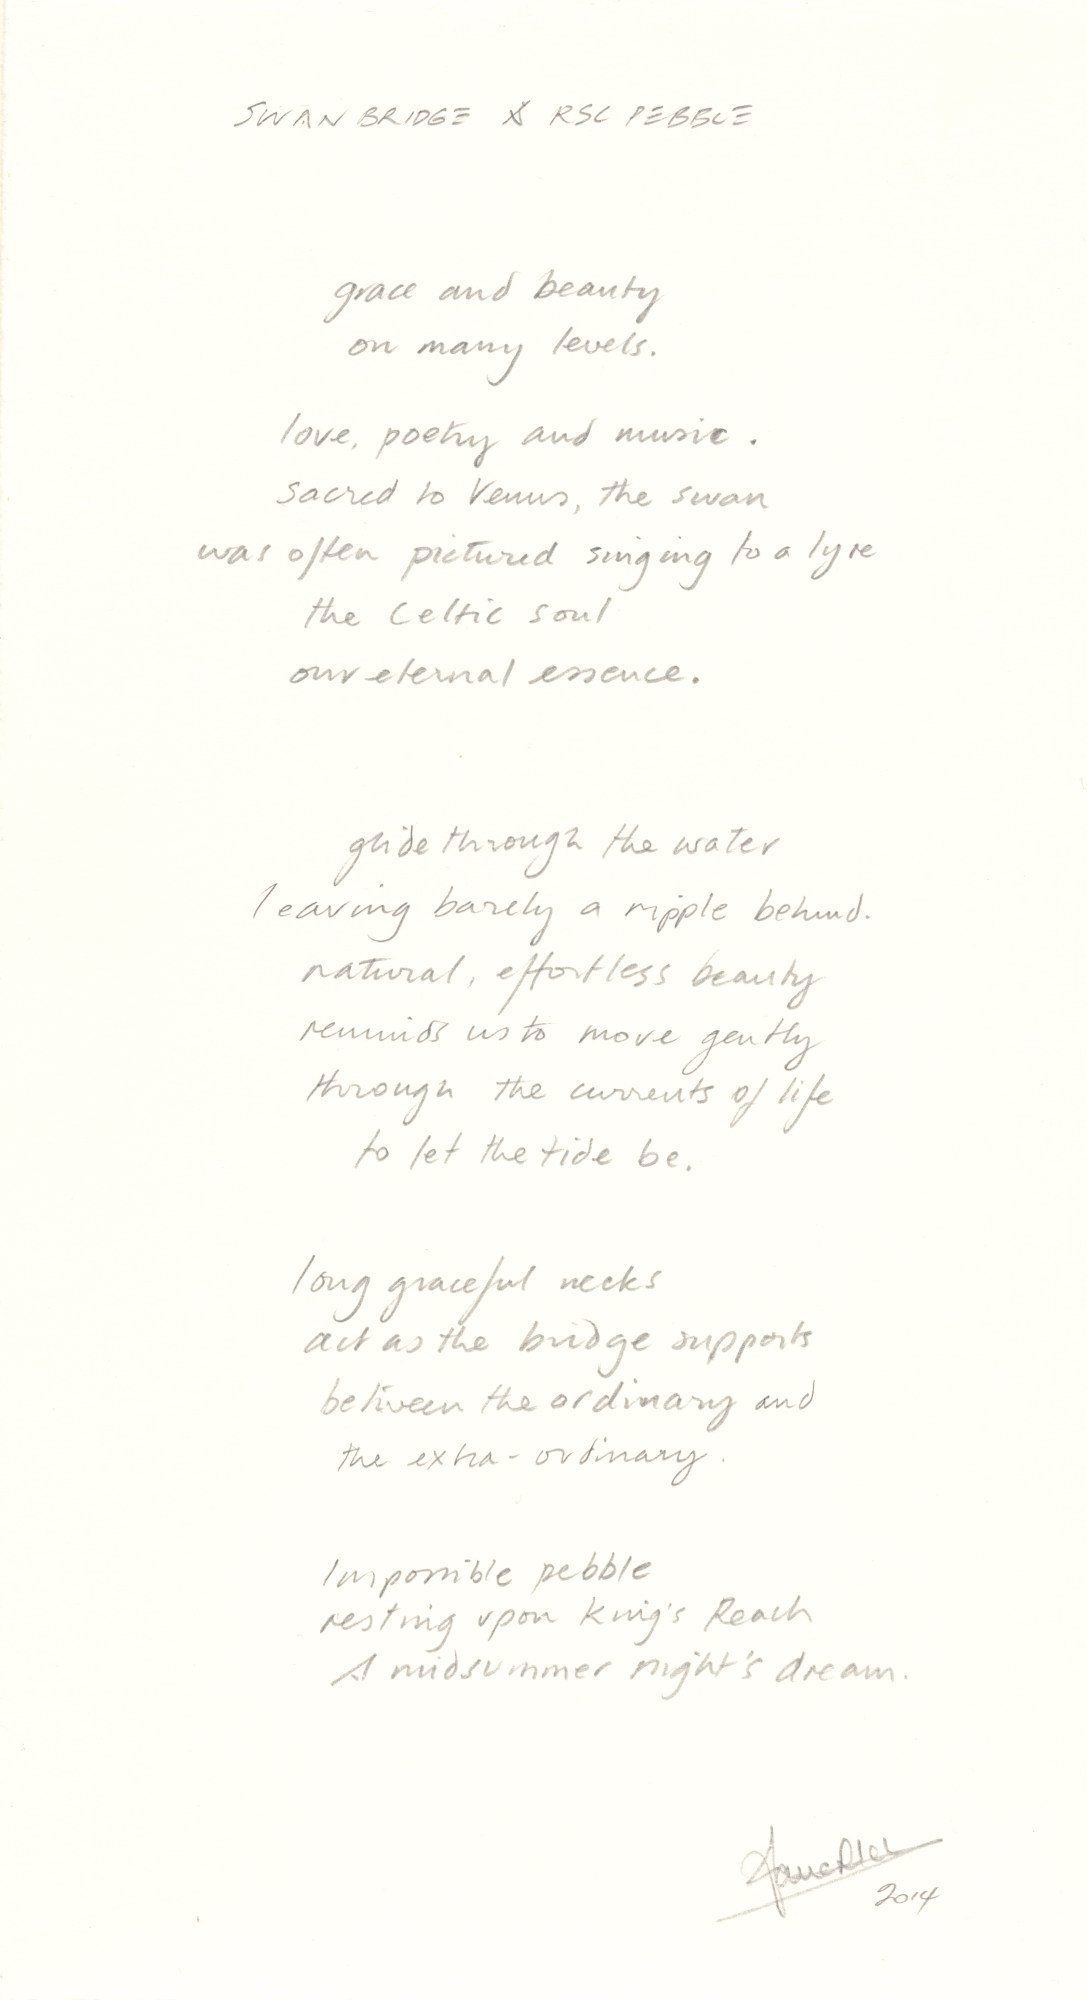 SWAN BRIDGE & RSC PEBBLE
grace and beauty
on many levels.
love, poetry and music.
sacred to Venus, the swan
was often pictured singing to a lyre
the Celtic soul
our eternal essence.
glide through the water
leaving barely a ripple behind.
natural, effortless beauty
reminds us to move gently
through the currents of life
to let the tide be.
long graceful necks
act as the bridge supports
between the ordinary and
the extra-ordinary.
Impossible pebble
resting upon King's Reach
A midsummer night's dream.
2014